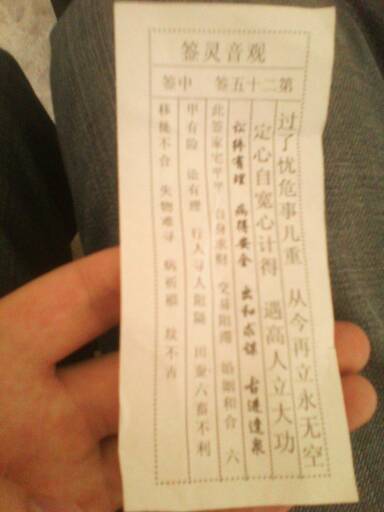 观音灵签
第二十五签 中签
过了忧危事几重 从今再立永无空
定心自宽心计得 遇高人立大功
讼终有理 病得安全 出和求谋 古进逢泉
此签家宅平平 自身求财 交易阻滞 婚姻和合 六
甲有险 讼有理 行人寻人阻隔 田蚕六畜不利
移徙不合 失物难寻 病祈福 坟不吉